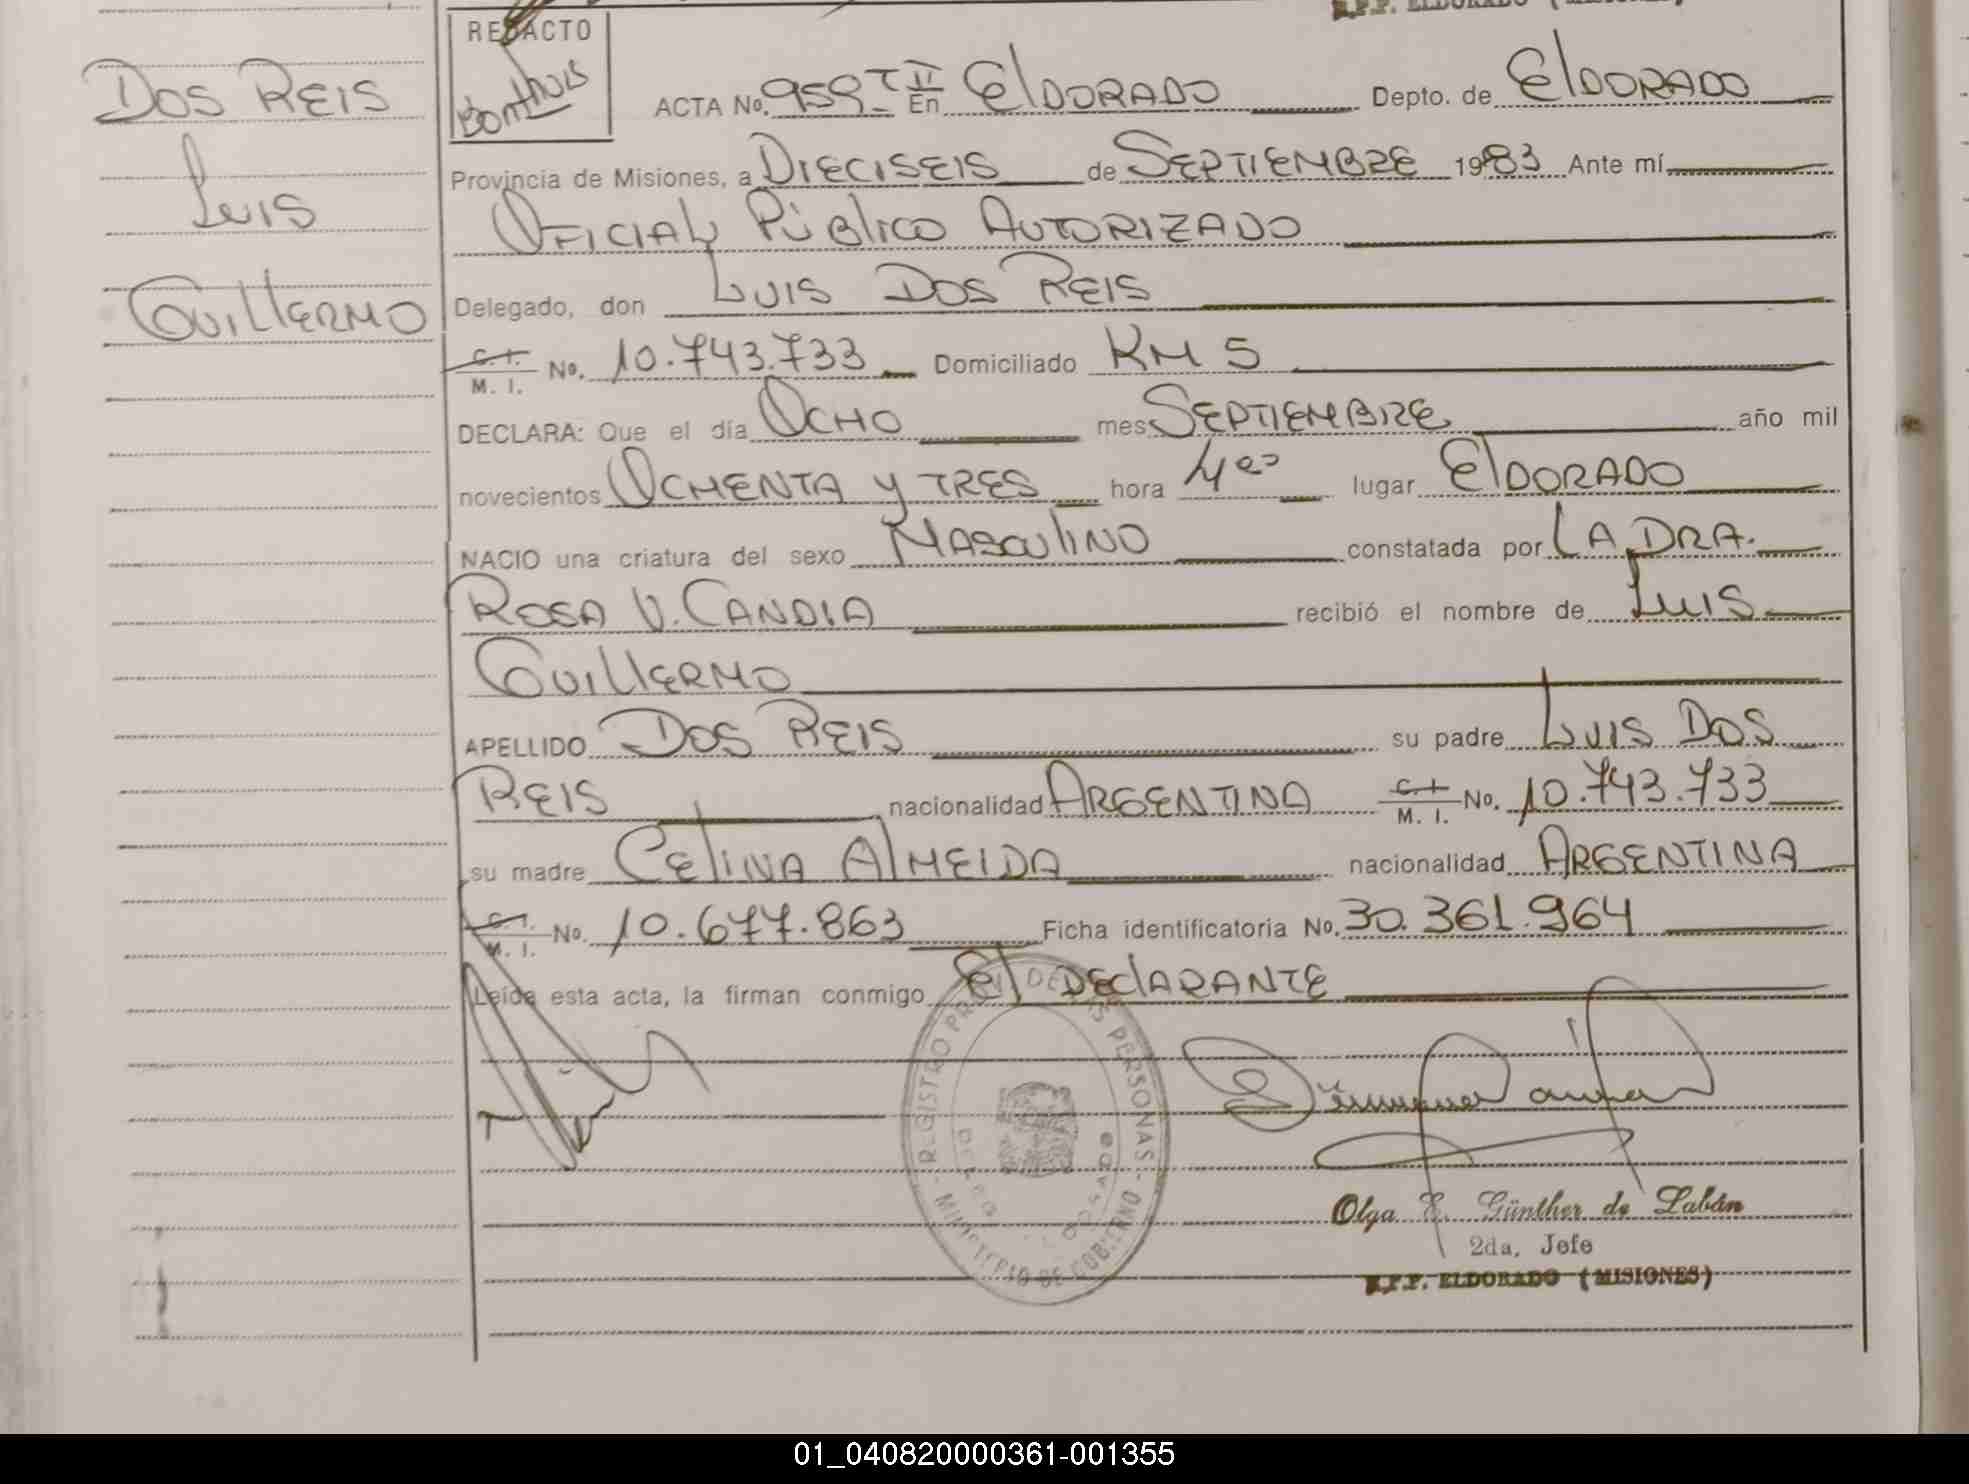 R.P.P. ELDORADO (MISIONES)
REDACTO
DOS REIS
Luis
Guillermo
ACTA No. 959 T II En ElDORADO Depto. de ElDORADO
Provincia de Misiones, a DIECISEIS de SEPTIEMBRE 1983 Ante mí
OFICIAL PÚBLICO AUTORIZADO
Delegado, don LUIS DOS REIS
C. I. / M. I. No. 10.743.733 Domiciliado KM 5
DECLARA: Que el día OCHO mes SEPTIEMBRE año mil
novecientos OCHENTA y TRES hora 4 lugar ElDORADO
NACIO una criatura del sexo MASCULINO constatada por LA DRA.
ROSA V. CANDIA recibió el nombre de LUIS
GUILLERMO
APELLIDO DOS REIS su padre LUIS DOS
REIS nacionalidad ARGENTINA C. I. / M. I. No. 10.743.733
su madre CELINA ALMEIDA nacionalidad ARGENTINA
C. I. / M. I. No. 10.677.863 Ficha identificatoria No. 30.361.964
Leída esta acta, la firman conmigo El DEClARANTE
REGISTRO DE LAS PERSONAS - MINISTERIO DE GOBIERNO
Olga E. Günther de Labán
2da. Jefe
R.P.P. ELDORADO (MISIONES)
01_040820000361-001355